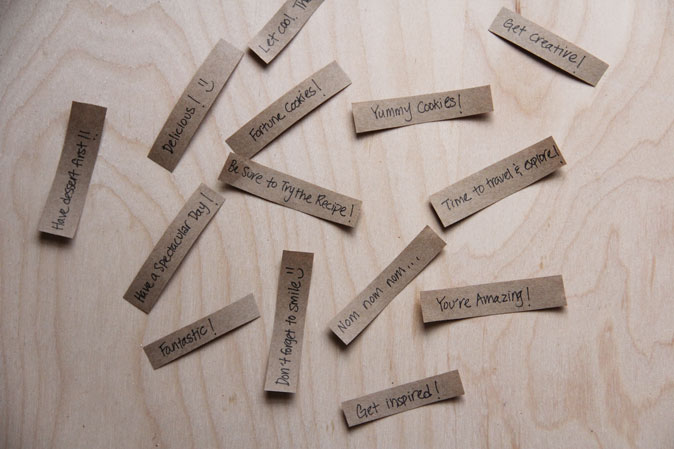 Let cool. Th
Get creative!
Delicious! :)
Fortune Cookies!
Yummy Cookies!
Have dessert first!!
Be Sure to Try the Recipe!
Time to travel & explore!
Have a Spectacular Day!
Nom nom nom...
You're Amazing!
Fantastic!
Don't forget to smile :)
Get inspired!